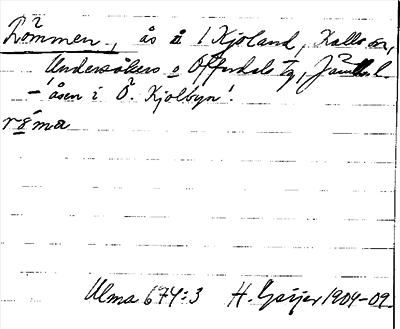 Römmen, ås i Kjoland, Kalls sn,
Undersåkers o Offerdals tg, Jämtl.
– 'åsen i Ö. Kjolbyn'.
rema
Ulma 674:3 H. Geijer 1904–09.